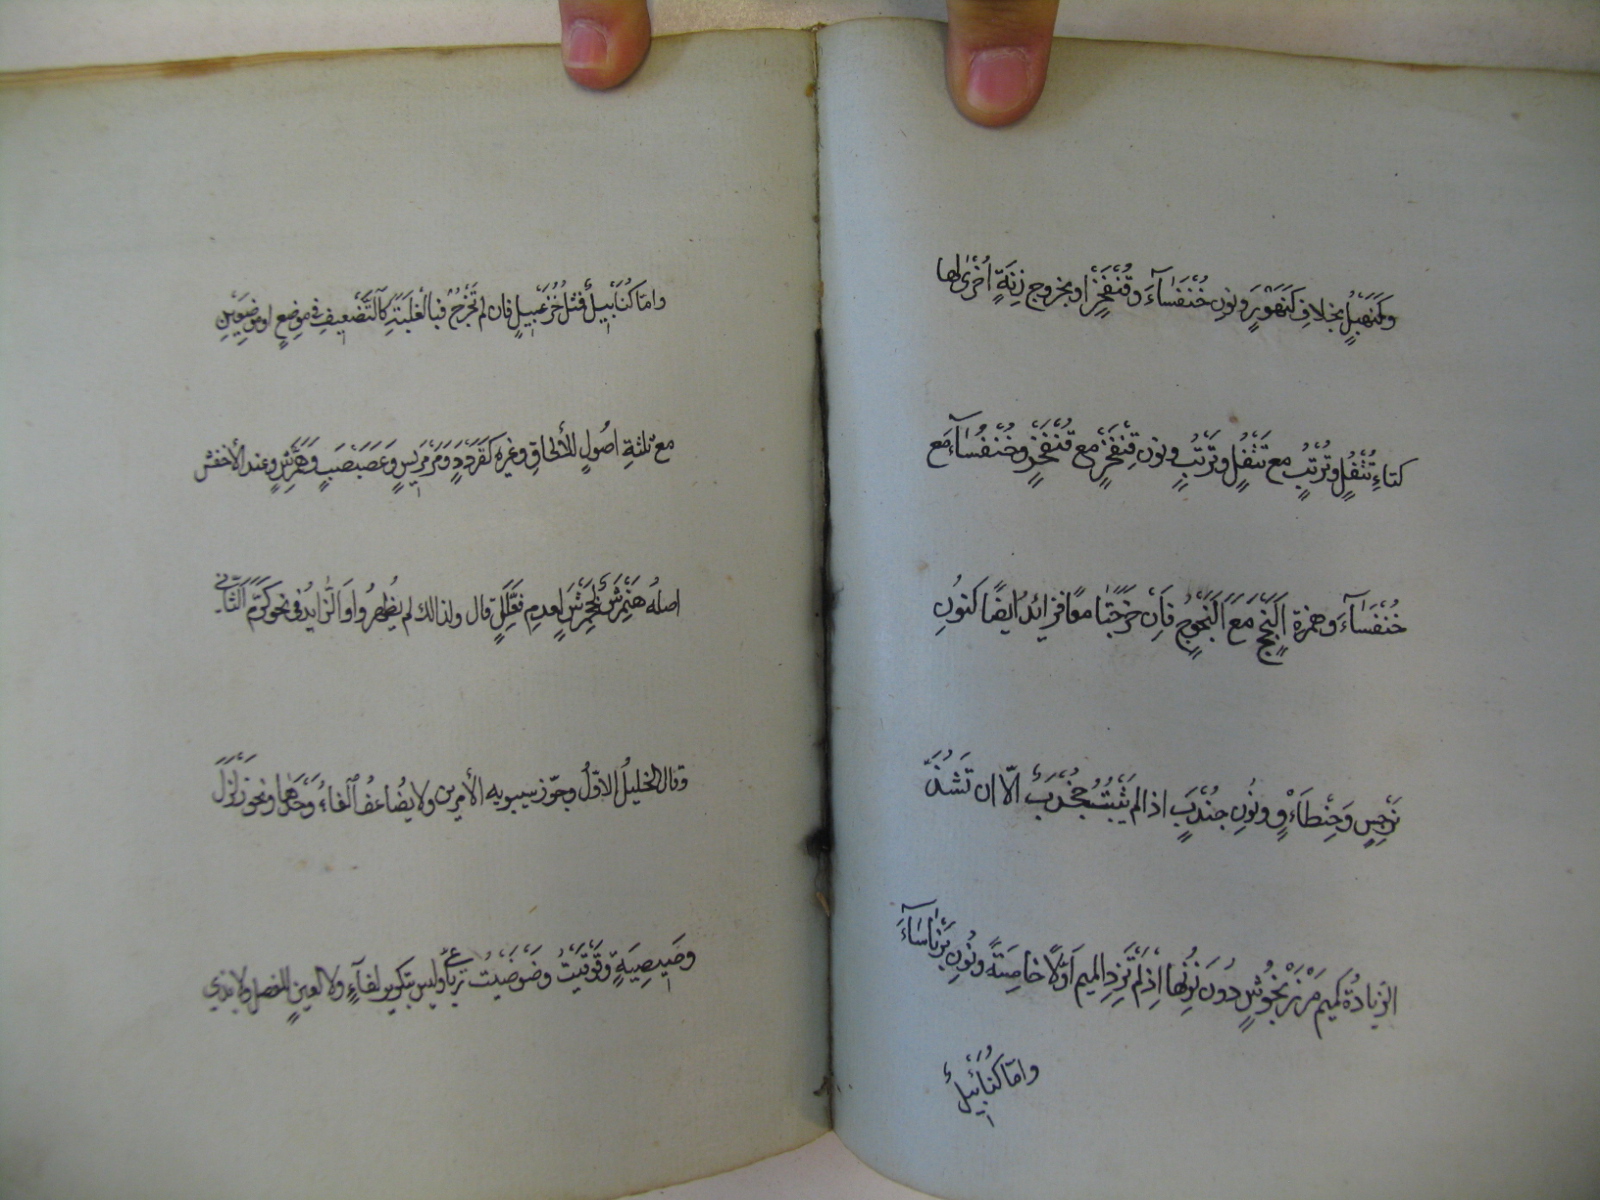 وَكَنَهْبُلٍ بخلافِ كَنَهْوَرٍ ونونِ خُنْفَسَآءَ وقُنْفَخْرٍ او بخروج زِنَةٍ اُخْرىٰ لها
كتاءِ تُتْفُلٍ وتُرْتُبٍ مع تَتْفُلٍ وتَرْتُبٍ ونون قِنْفَخْرٍ مع قُنْفَخْرٍ وخُنْفُسَآءَ مع
خُنْفَسَآءَ وهمزة اَلَنْجَجٍ مَعَ اَلَنْجُوجٍ فَاِنْ خَرَجَتَا معًا فزائدٌ ايضًا كنونِ
نَرْجِسٍ وَحِنْطَاْءٍ وٍ ونُونِ جُنْدَبٍ اذا لم يَثْبُتْ جُخْدَبٌ الّا ان تَشُذَّ
الزيادةُ كميم مَرْزَنْجُوشٍ دُونَ نُونِهَا اِذْ لَمْ تُزَدِ الميم اَوَّلًا خامِسَةً ونُونِ بَرْنَاسَآءَ
وامّا كُنَابِيلٌ
وامّا كُنَابِيلٌ فَمثلُ خُزَعْبِيلٍ فان لم تَخْرُجْ فبالغَلَبَةِ كَالتَّضْعِيفِ في موضعٍ اوموضِعَيْنِ
مع ثلثةِ اصُولٍ للألحاقِ وغيره كقَرْدَدٍ وَمَرْمَرِيسٍ وَعَصَبْصَبٍ وَهَمَّرِشٍ وعند الأخفش
اصلهُ هَنْمَرِشٌ كَجَحْمَرِشٍ لعدمِ فَعَّلِلٍ قال ولذالك لم يُظهِرُوا وَالزَّايدُ في نحو كَرَّمَ الثَّاني
وقال الخليلُ الاوّلُ وجوّز سيبويه الأمرين ولا يضُاعفُ الفاءُ وَحْدَها ونحو زَلْزَلَ
وصِيصِيَةٍ وقَوْقَيْتُ وضَوْضَيْتُ رباعيٌّ وليس بتكرير لفاءٍ ولا لعينٍ للفصل ولا بذي